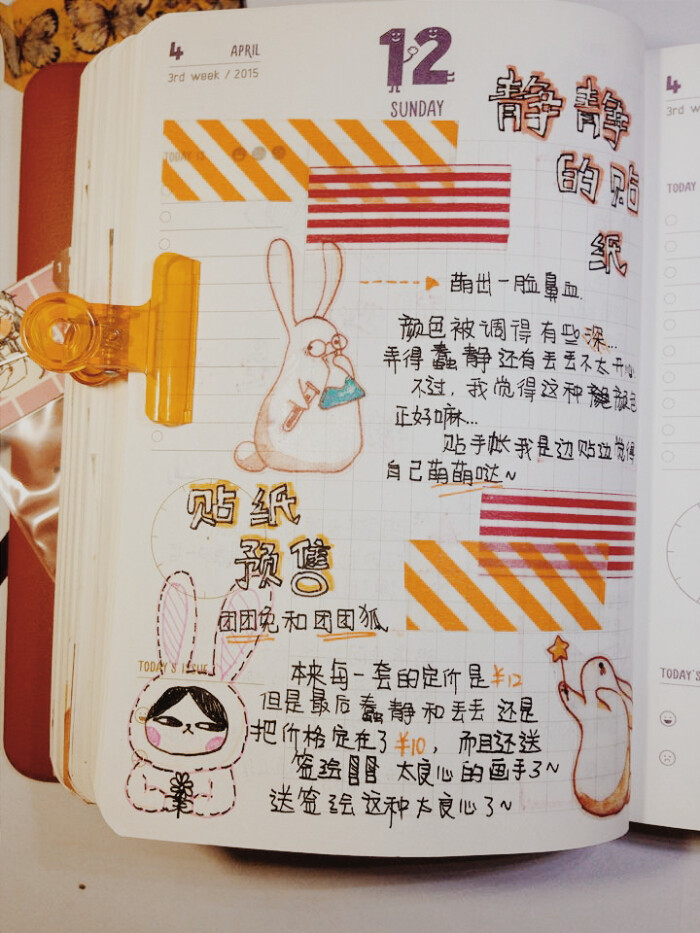 4 APRIL
3rd week / 2015
12
SUNDAY
静静
的贴
纸
TODAY IS
萌出一脸鼻血.
颜色被调得有些深...
弄得蠢静还有丢丢不太开心,
不过,我觉得这种颜色
正好嘛...
贴手帐我是边贴边觉得
自己萌萌哒~
贴纸
预售
团团兔和团团狐
TODAY'S ISSUE
本来每一套的定价是¥12
但是最后蠢静和丢丢还是
把价格定在了¥10,而且还送
签绘 太良心的画手了~
送签绘这种太良心了~
4
3rd w
TODAY
TODAY'S